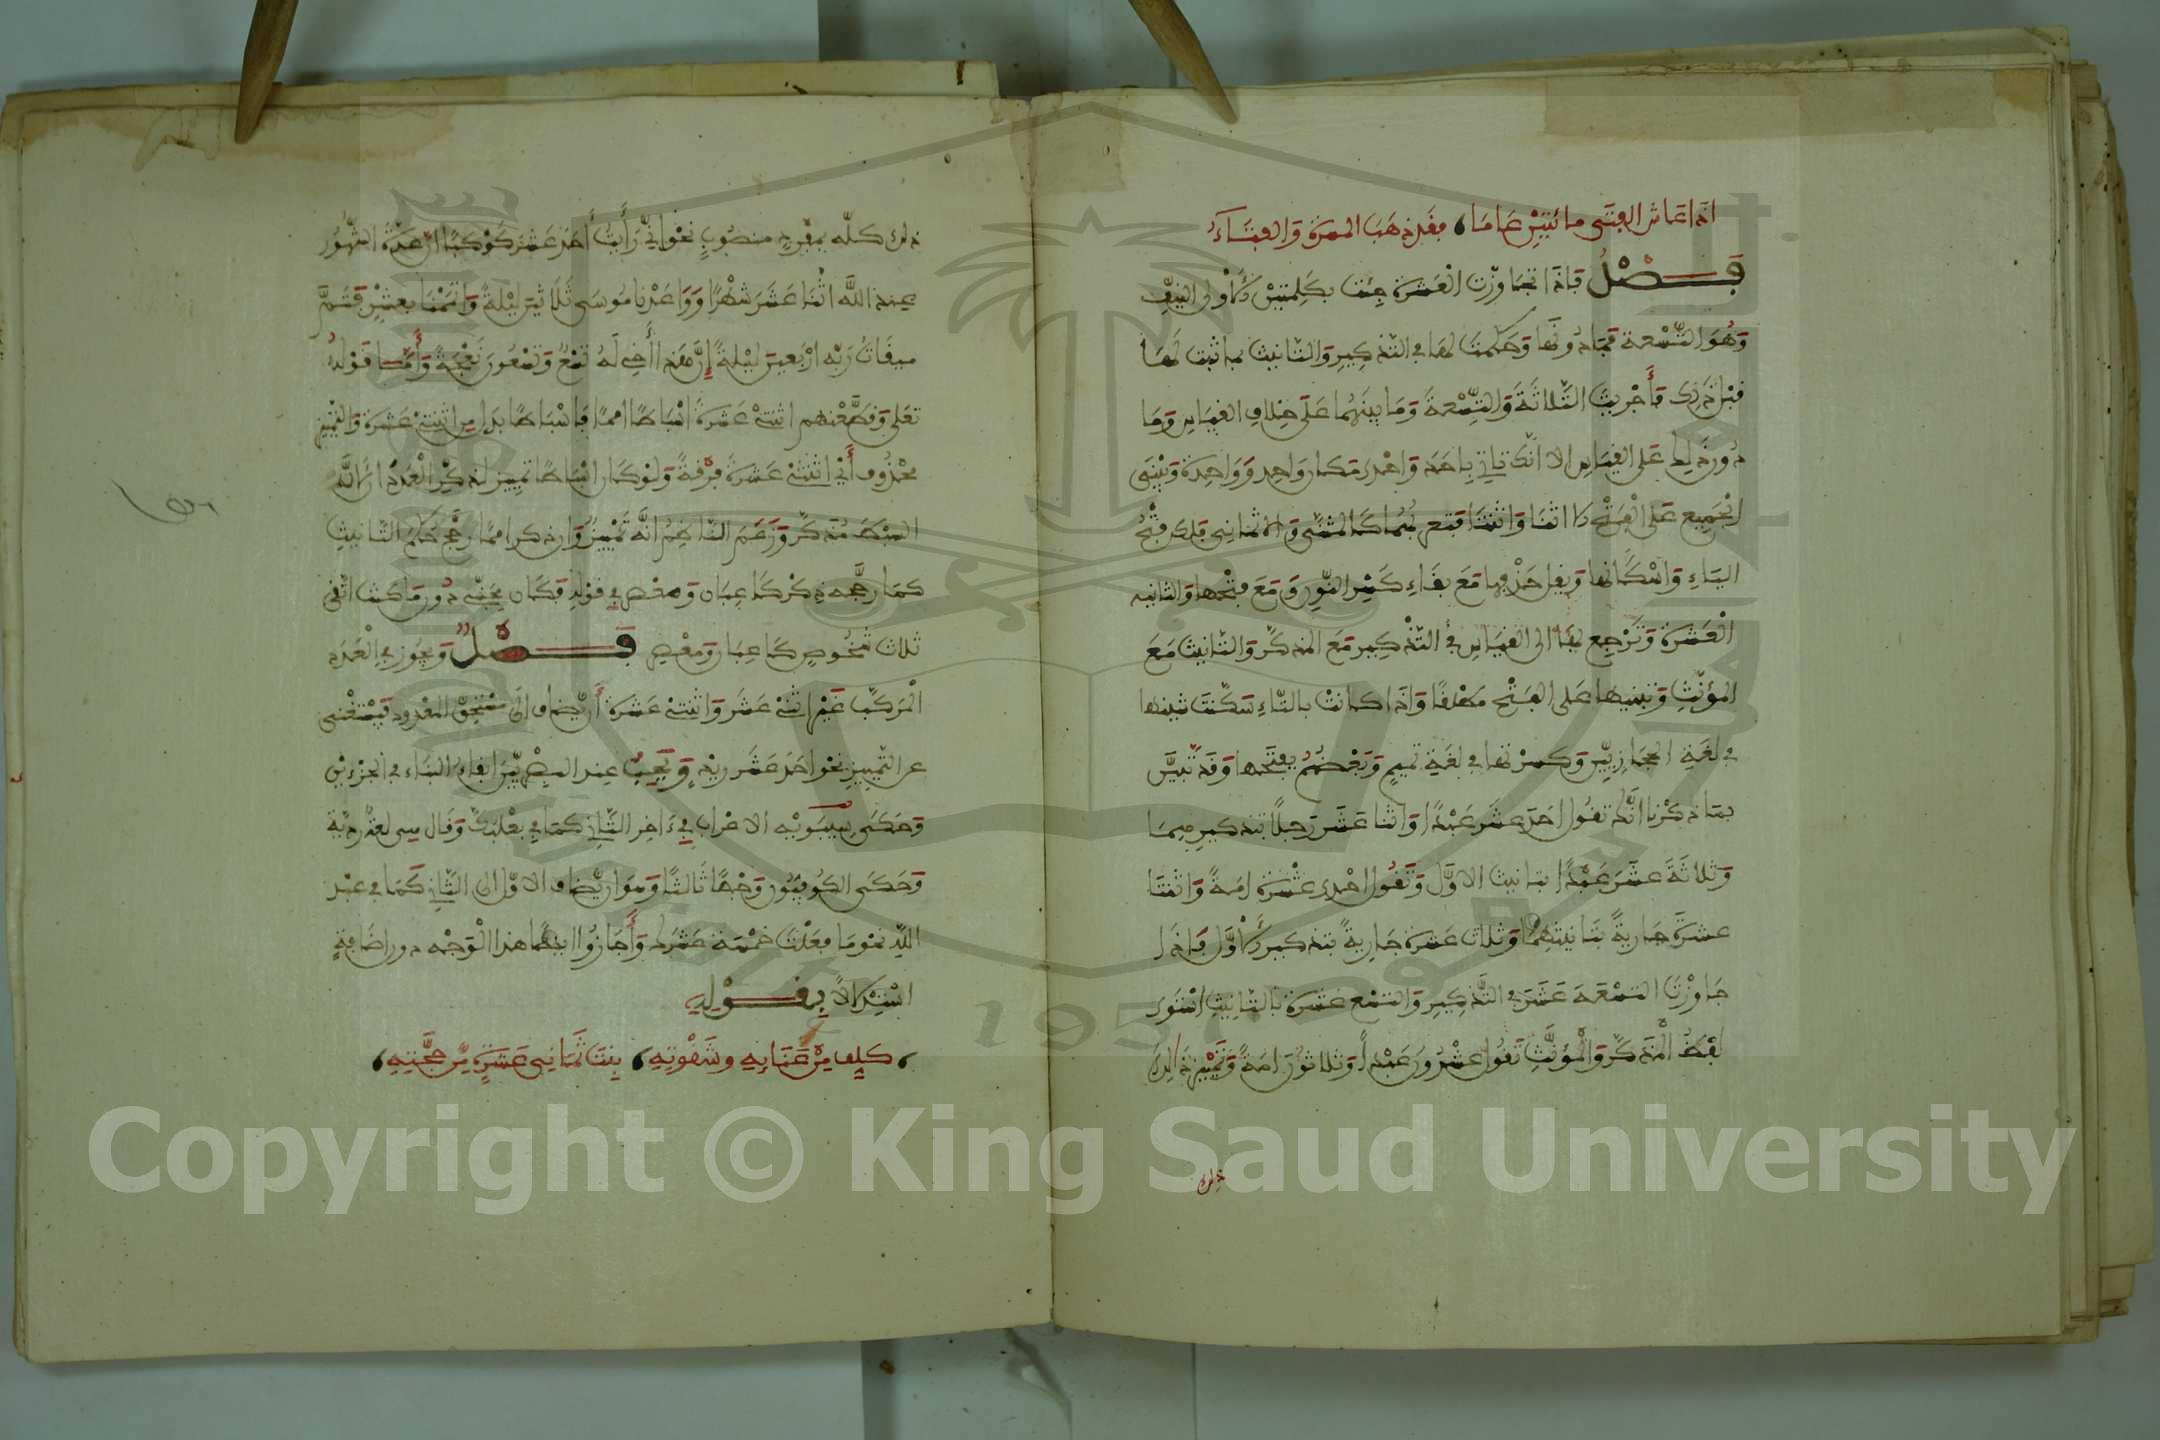 اذا عاش الفتى مائتين عاما فقد ذهب المسرة والفتاء
فصل فاذا تجاوزت العشرة جئت بكلمتين الأولى النيف
وهو التسعة فما دونها وحكمت لها في التذكير والتانيث بما ثبت لها
قبل ذلك فأجريت الثلاثة والتسعة وما بينهما على خلاف القياس وما
دون ذلك على القياس الا انك تاتي باحد واحدى مكان واحد وواحدة وتبنى
الجميع على الفتح الا اثنا واثنتا فتعربهما كالمثنى والا ثماني فلك فتح
الياء واسكانها ويقل حذفها مع بقاء كسر النون ومع فتحها والثانية
العشرة وترجع بها الى القياس في التذكير مع المذكر والتانيث مع
المؤنث وتبنيها على الفتح مطلقا واذا كانت بالتاء سكنت شينها
في لغة الحجازيين وكسرتها في لغة تميم وبعضهم يفتحها وقد تبين
بما ذكرنا انك تقول احد عشر عبدا واثنا عشر رجلا بتذكيرهما
وثلاثة عشر عبدا بتانيث الاول وتقول احدى عشرة امة واثنتا
عشرة جارية بتانيثهما وثلاث عشرة جارية بتذكير الأول فاذا
جاوزت التسعة عشر في التذكير والتسع عشرة في التانيث استوى
لفظ المذكر والمؤنث تقول عشرون عبدا وثلاثون امة وتمييز ذلك
ذلك
ذلك كله بمفرد منصوب نحو اني رأيت أحد عشر كوكبا ان عدة الشهور
عند الله اثنا عشر شهرا وواعدنا موسى ثلاثين ليلة واتممناها بعشر فتم
ميقات ربه اربعين ليلة إن هذا أخي له تسع وتسعون نعجة وأما قوله
تعلى وقطعنهم اثنتي عشرة اسباطا امما فاسباطا بدل من اثنتي عشرة والتمييز
محذوف أي اثنتي عشرة فرقة ولو كان اسباطا تمييز لذكر العدد ان لان
السبط مذكر وزعم الناظم انه تمييز وان ذكر امما رجح حكم التانيث
كما رجحه ذكر كاعبان ومعصر في قوله فكان مجني دون ما كنت اتقي
ثلاث شخوص كاعبان ومعصر فصل ويجوز في العدد
المركب غير اثني عشر واثنتي عشرة أن يضاف الى مستحق المعدود فيستغنى
عن التمييز نحو احد عشر زيد ويجب عند البصريين ابقاء البناء في الجزءين
وحكى سيبويه الاعراب في ءاخر الثاني كما في بعلبك وقال هي لغة ردية
وحكى الكوفيون وجها ثالثا وهو ان يضاف الاول الى الثاني كما في عبد
الله نحو ما فعلت خمسة عشرك وأجازوا ايضا هذا الوجه دون اضافة
استدلالا بقوله
كلف من عنائه وشقوته بنت ثماني عشرة من حجته